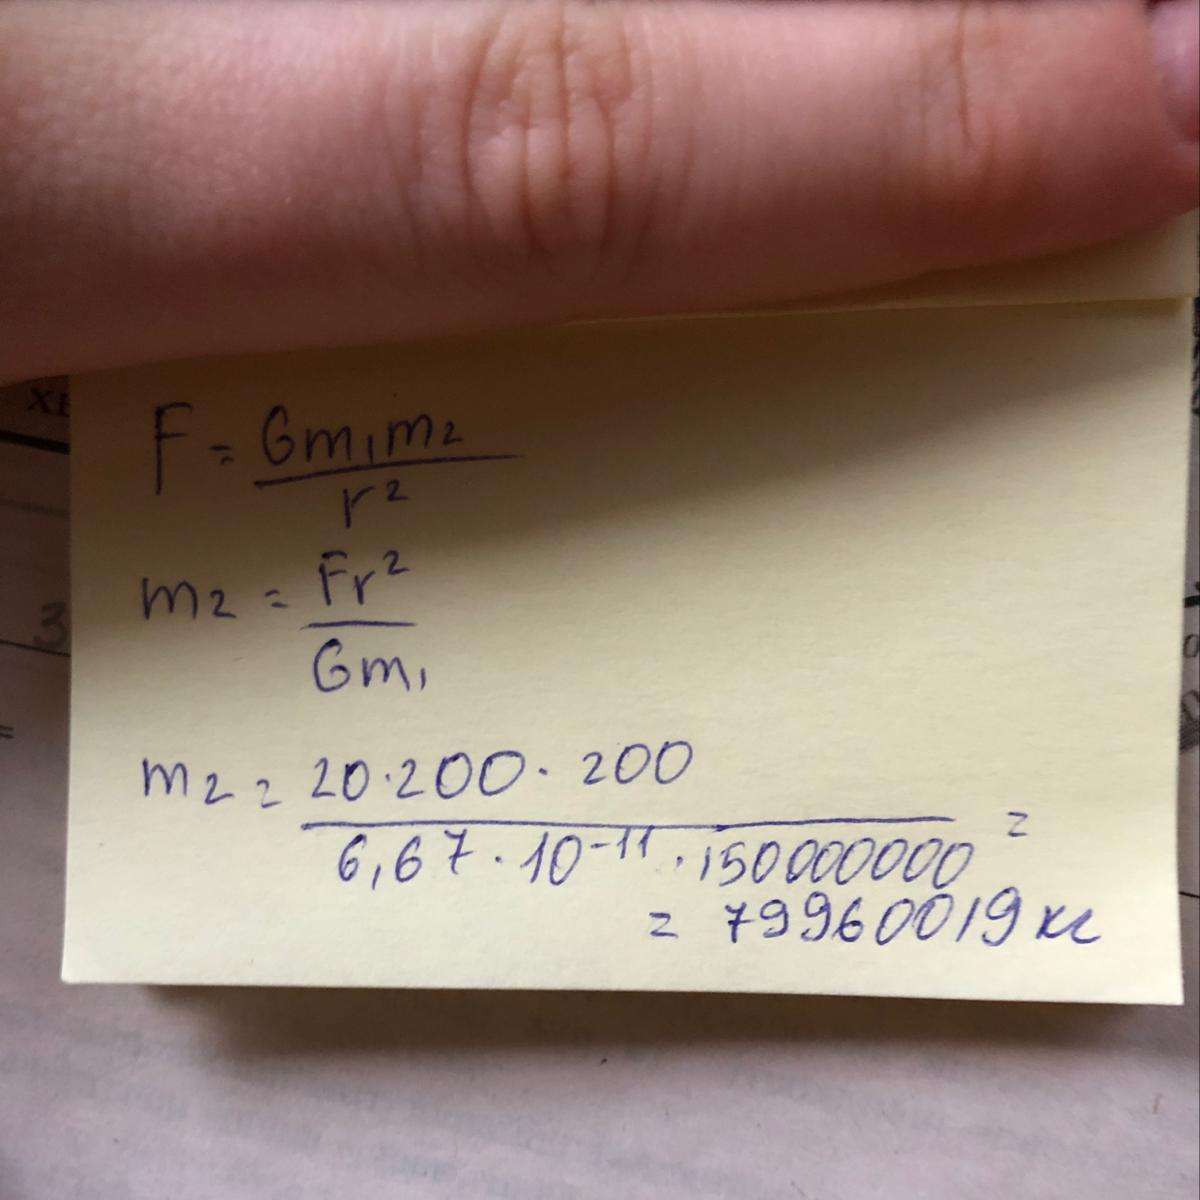 F = Gm₁m₂ / r²
m₂ = Fr² / Gm₁
m₂ = 20·200·200 / 6,67·10⁻¹¹·150000000 =
= 79960019 кг
3
=